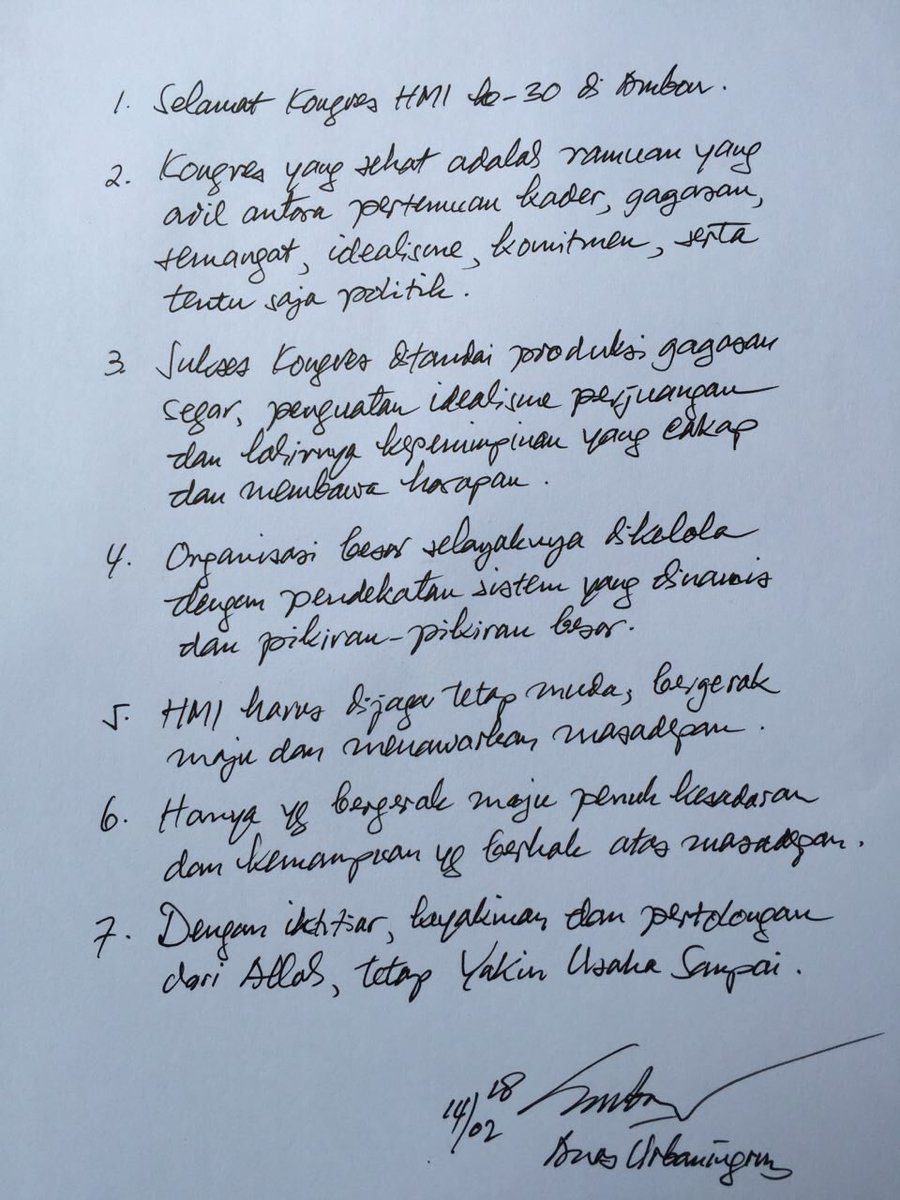 1. Selamat Kongres HMI ke-30 di Ambon.
2. Kongres yang sehat adalah ramuan yang
adil antara pertemuan kader, gagasan,
semangat, idealisme, komitmen, serta
tentu saja politik.
3. Sukses Kongres ditandai produksi gagasan
segar, penguatan idealisme perjuangan
dan lahirnya kepemimpinan yang cakap
dan membawa harapan.
4. Organisasi besar selayaknya dikelola
dengan pendekatan sistem yang dinamis
dan pikiran-pikiran besar.
5. HMI harus dijaga tetap muda, bergerak
maju dan menawarkan masadepan.
6. Hanya yg bergerak maju penuh kesadaran
dan kemampuan yg berhak atas masadepan.
7. Dengan ikhtiar, keyakinan dan pertolongan
dari Allah, tetap Yakin Usaha Sampai.
14/02 18
Anas Urbaningrum